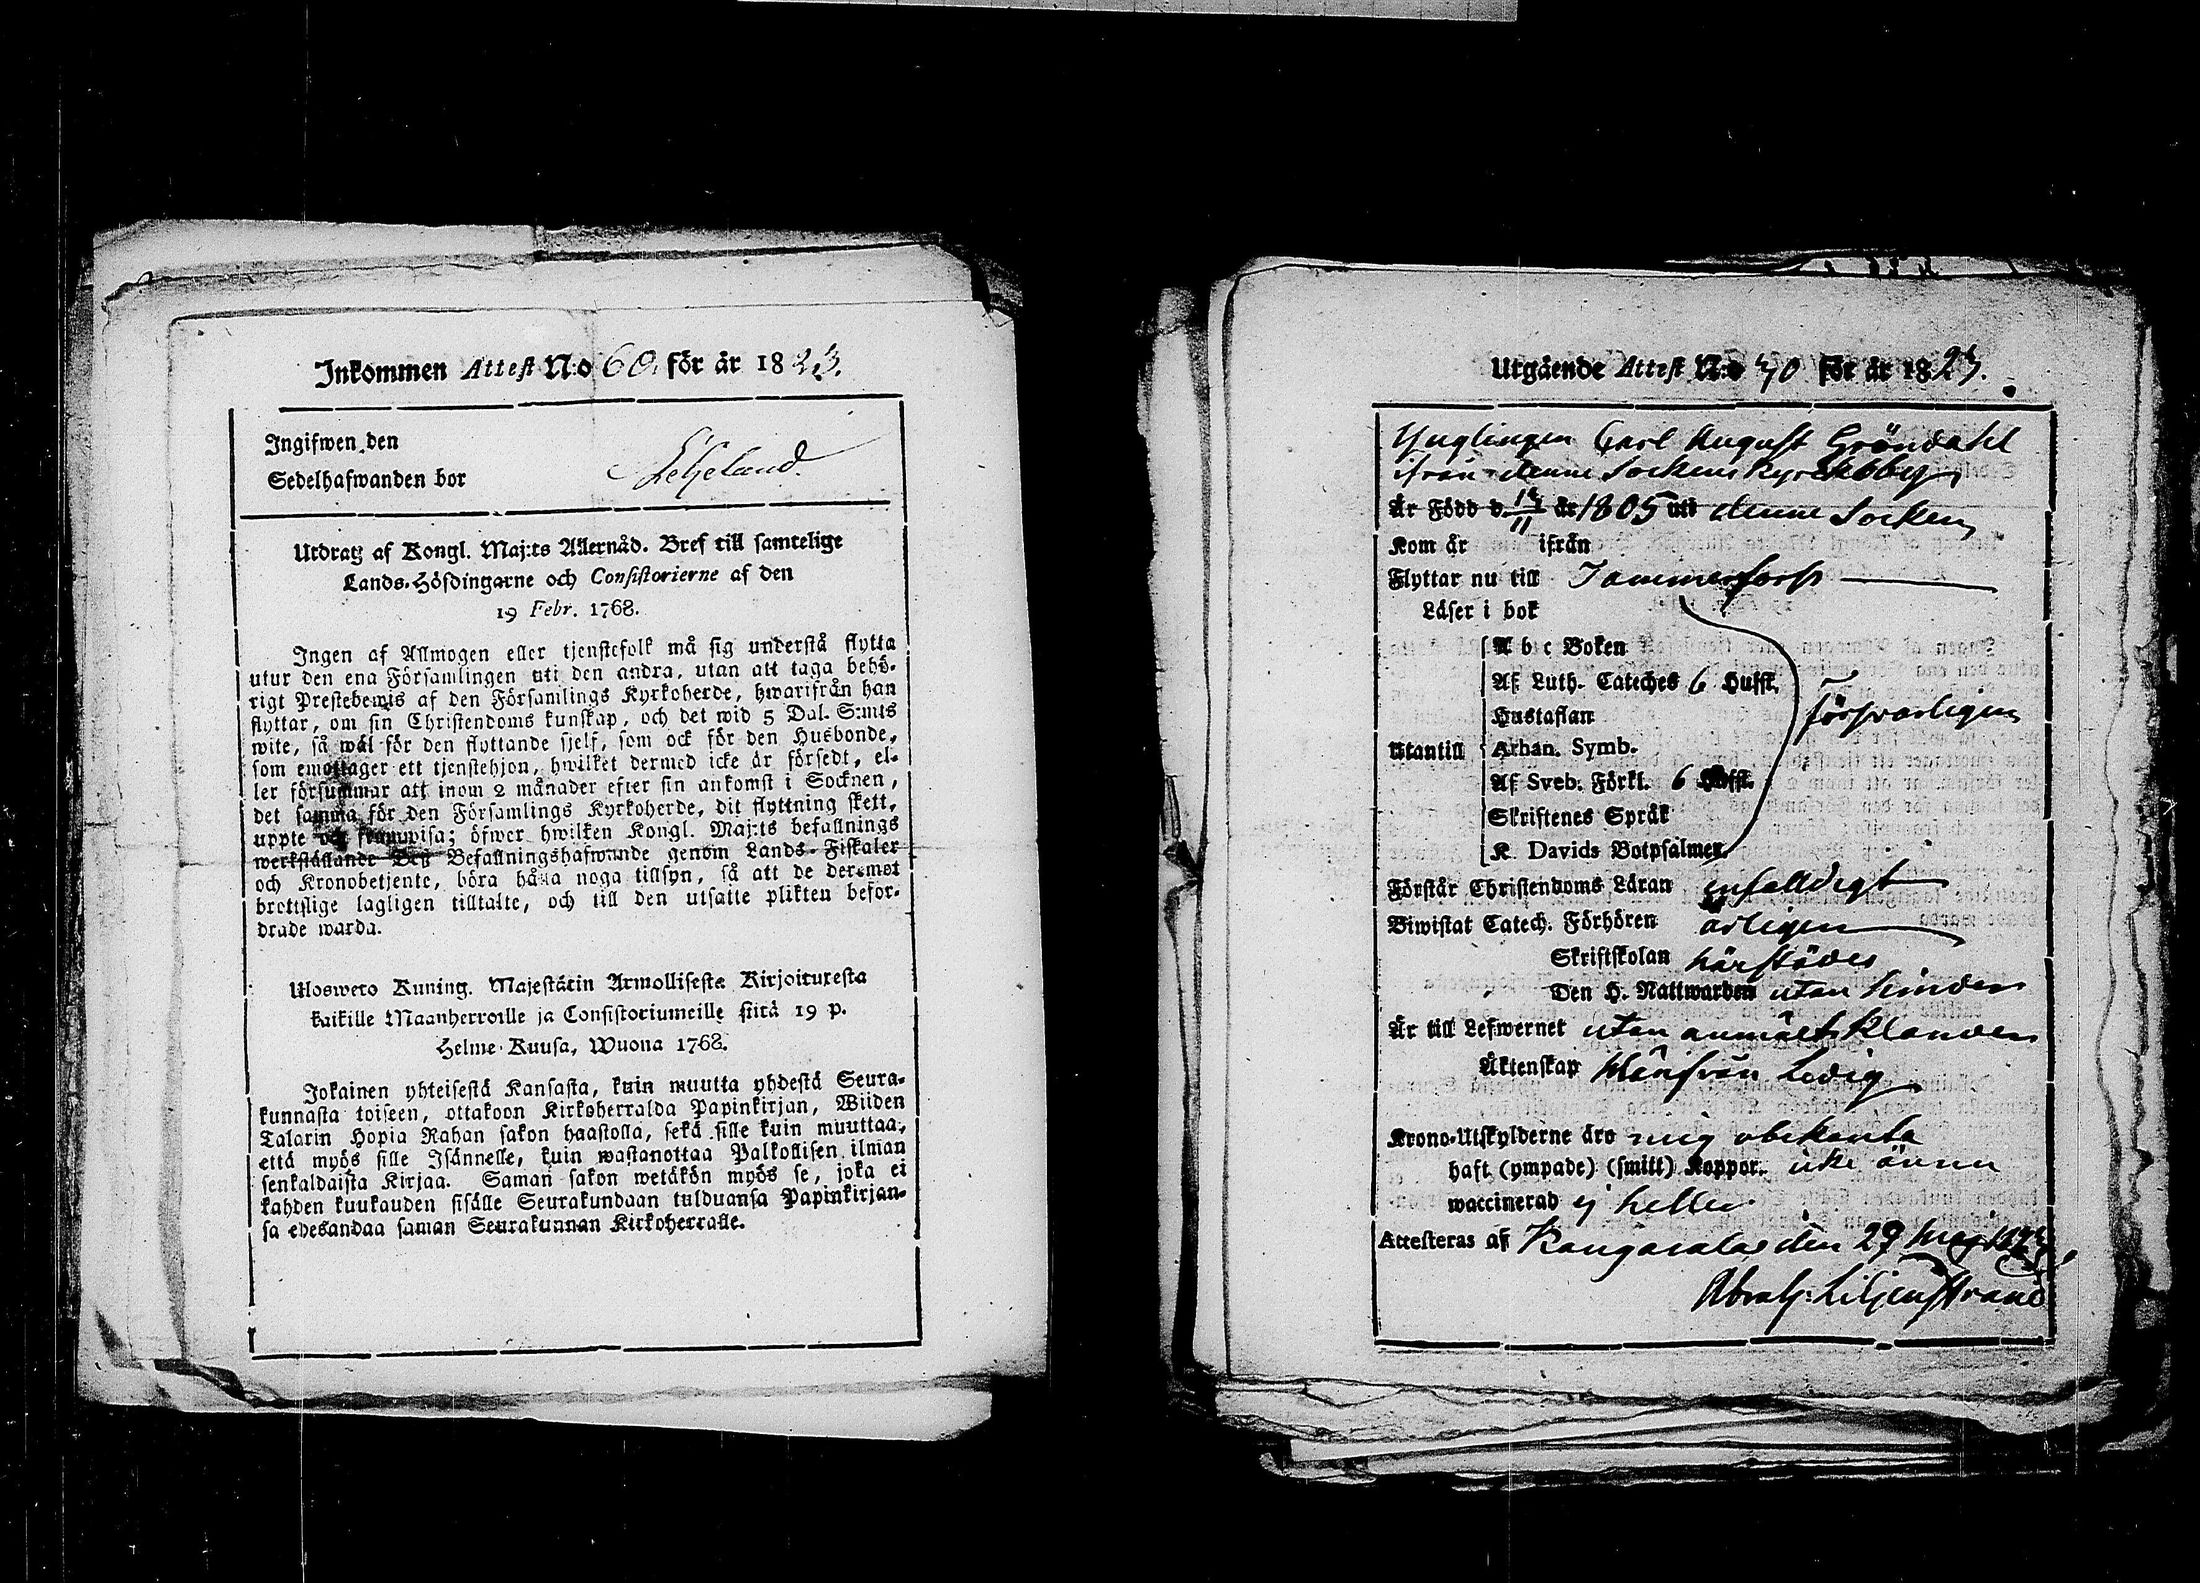 Inkommen Attest N:o 60. för år 1823.
Ingifwen den
Sedelhafwanden bor
Utdrag af Kongl. Maj:ts Allernåd. Bref till samtelige
Lands-Höfdingarne och Consistorierne af den
19 Febr. 1768.
Ingen af Allmogen eller tjenstefolk må sig understå flytta
utur den ena Församlingen uti den andra, utan att taga behö-
rigt Prestebewis af den Församlings Kyrkoherde, hwarifrån han
flyttar, om sin Christendoms kunskap, och det wid 5 Dal. S:mts
wite, så wäl för den flyttande sjelf, som ock för den Husbonde,
som emottager ett tjenstehjon, hwilket dermed icke är försedt, el-
ler försummar att inom 2 månader efter sin ankomst i Socknen,
det samma för den Församlings Kyrkoherde, dit flyttning skett,
uppte och framwisa; öfwer hwilken Kongl. Maj:ts befallnings
werkställande Deß Befallningshafwande genom Lands-Fiskaler
och Kronobetjente, böra hålla noga tillsyn, så att de deremot
brottslige lagligen tilltalte, och till den utsatte plikten befor-
drade warda.
Ulosweto Kuning. Majestätin Armollisesta Kirjoituresta
kaikille Maanherroille ja Consistoriumeille siitä 19 p.
Helme-Kuusa, Wuona 1768.
Jokainen yhteisestä Kansasta, kuin muutta yhdestä Seura-
kunnasta toiseen, ottakoon Kirkoherralda Papinkirjan, Wiiden
Talarin Hopia Rahan sakon haastolla, sekä sille kuin muuttaa,
että myös sille Isännelle, kuin wastanottaa Palkollisen ilman
senkaldaista Kirjaa. Saman sakon wetäkön myös se, joka ei
kahden kuukauden sisälle Seurakundaan tulduansa Papinkirjan-
sa edesandaa saman Seurakunnan Kirkoherralle.
Utgående Attest N:o 30 för år 1823.
Ynglingen Carl August Gröndahl
ifrån denne Sockens Kyrckoby
Är Född d. 13/11 år 1805 uti denne Socken
Kom år ifrån
Flyttar nu till Tammerfors
Läser i bok
Abc Boken
Af Luth. Cateches 6 Hufst.
Hustaflan försvarligen
Utantill Athan. Symb.
Af Sveb. Förkl. 6 Hufst.
Skriftenes Språk
K. Davids Botpsalmer
Förstår Christendoms Läran enfalldigt
Biwistat Catech. Förhören årligen
Skriftskolan härstädes
Den H. Nattwarden utan hinder
Är till Lefwernet utan anmält klander
Äktenskap Härifrån Ledig
Krono-Utskylderne äro mig obekanta
haft (ympade) (smitt) Koppor. icke ännu
waccinerad ej heller
Attesteras af Kangasala den 29 Maj 1823.
Abrah: Liljenstrand